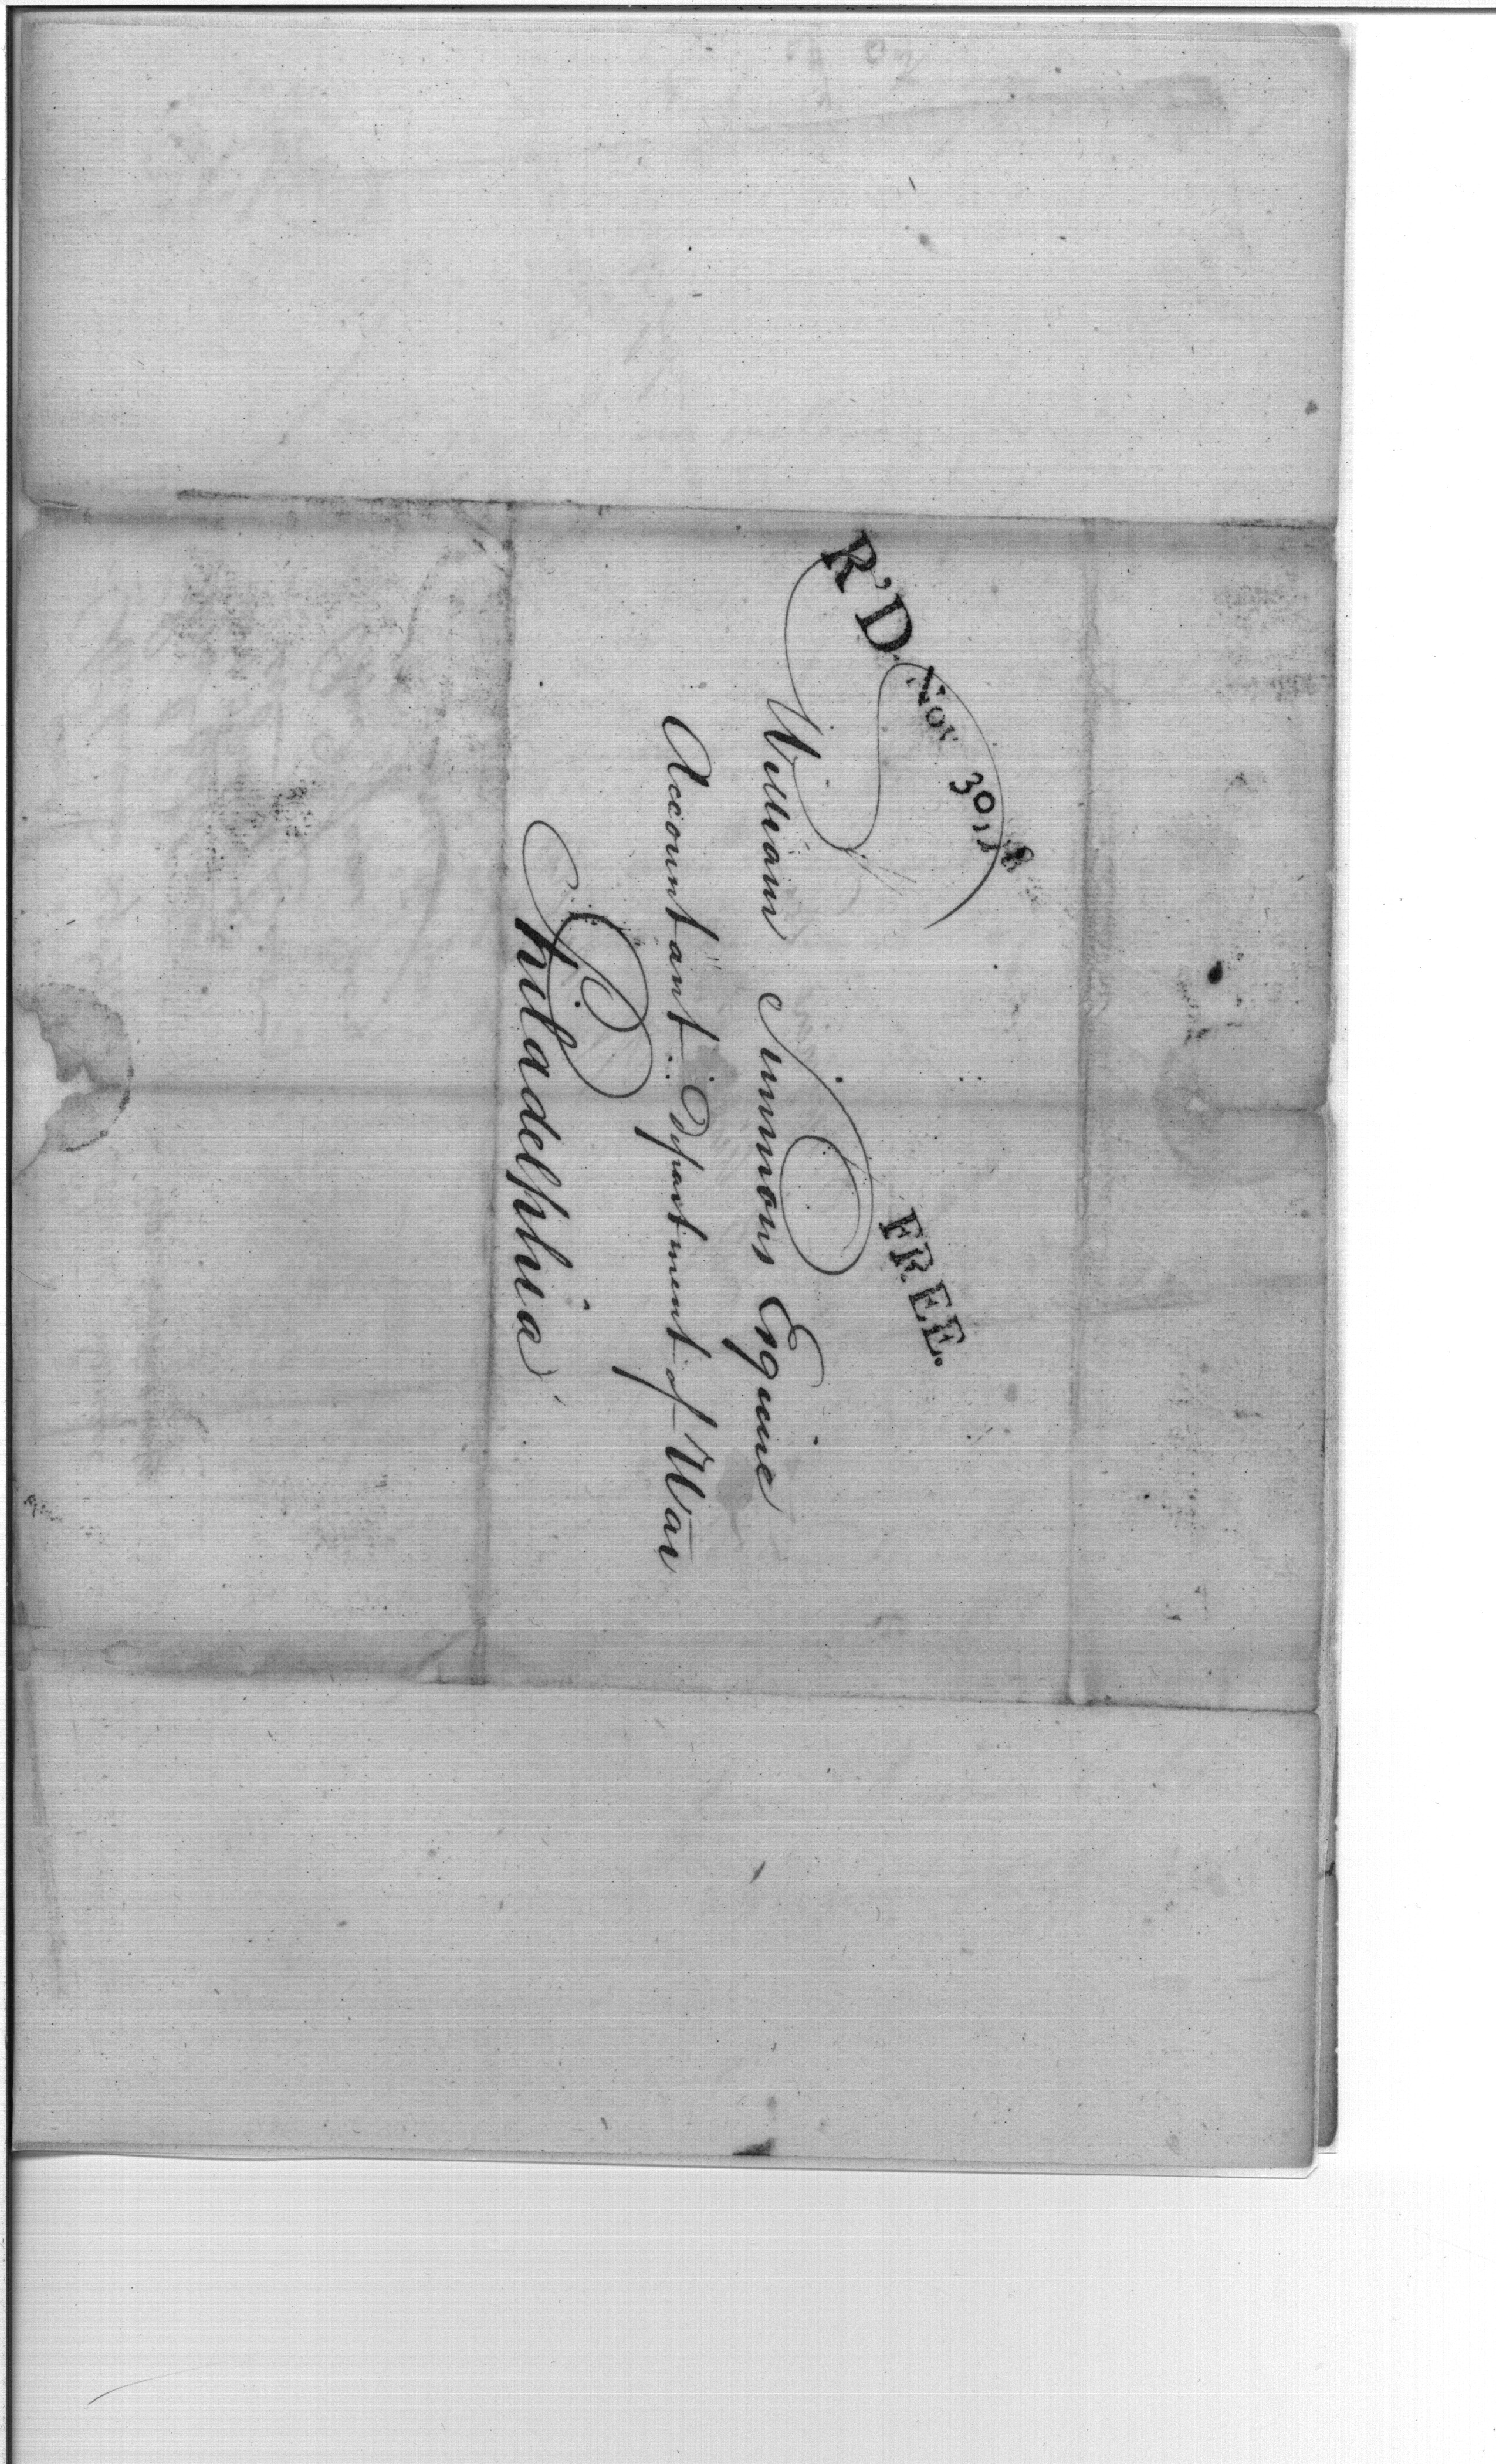 R'D. Nov 30, 18
FREE.
William Simmons Esquire
Accountant Department of War
Philadelphia